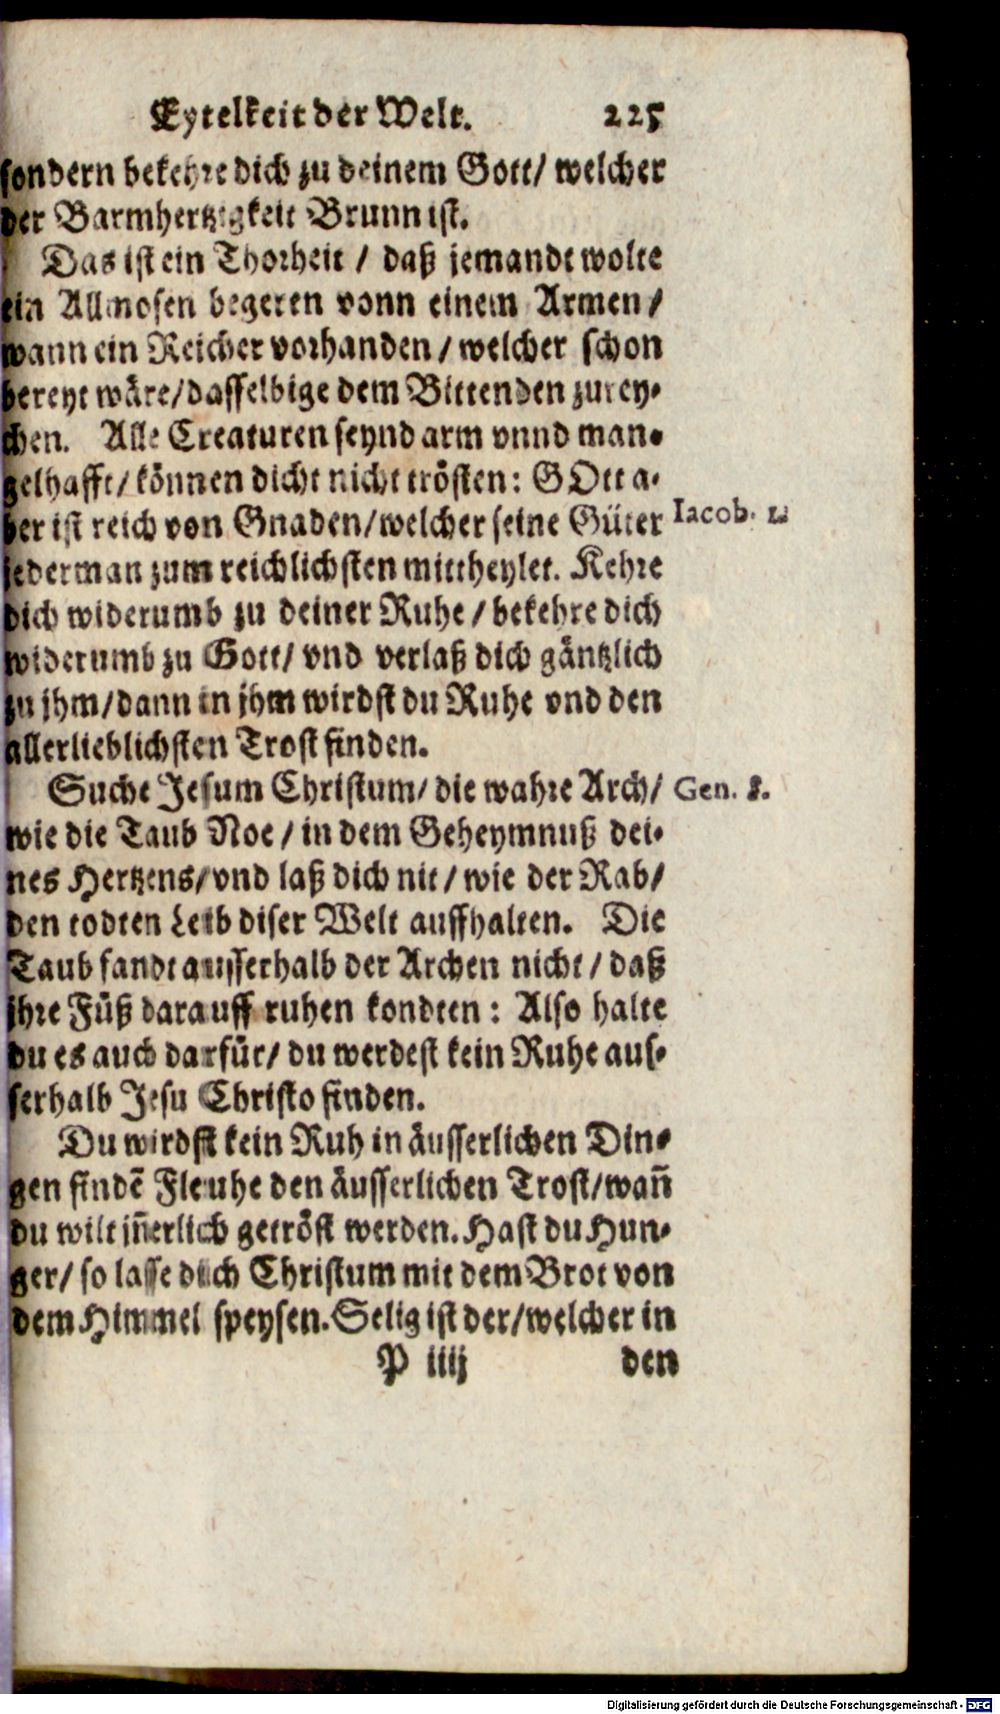 Eytelkeit der Welt. 225
sondern bekehre dich zu deinem Gott/ welcher
der Barmhertzigkeit Brunn ist.
Das ist ein Thorheit / daß jemandt wolte
ein Allmosen begeren vonn einem Armen/
wann ein Reicher vorhanden / welcher schon
bereyt wäre/dasselbige dem Bittenden zurey-
chen. Alle Creaturen seynd arm vnnd man-
gelhafft/können dicht nicht trösten: GOtt a-
ber ist reich von Gnaden/welcher seine Güter
Iacob. 1.
jederman zum reichlichsten mittheylet. Kehre
dich widerumb zu deiner Ruhe / bekehre dich
widerumb zu Gott/ vnd verlaß dich gäntzlich
zu jhm/dann in jhm wirdst du Ruhe vnd den
allerlieblichsten Trost finden.
Suche Jesum Christum/ die wahre Arch/
Gen. 8.
wie die Taub Noe / in dem Geheymnuß dei-
nes Hertzens/vnd laß dich nit / wie der Rab/
den todten Leib diser Welt auffhalten. Die
Taub fandt ausserhalb der Archen nicht / daß
jhre Füß darauff ruhen kondten : Also halte
du es auch darfür/ du werdest kein Ruhe aus-
serhalb Jesu Christo finden.
Du wirdst kein Ruh in äusserlichen Din-
gen findē Fleuhe den äusserlichen Trost/wañ
du wilt jñerlich getröst werden. Hast du Hun-
ger/ so lasse dich Christum mit dem Brot von
dem Himmel speysen. Selig ist der/welcher in
P iiij den
Digitalisierung gefördert durch die Deutsche Forschungsgemeinschaft - DFG